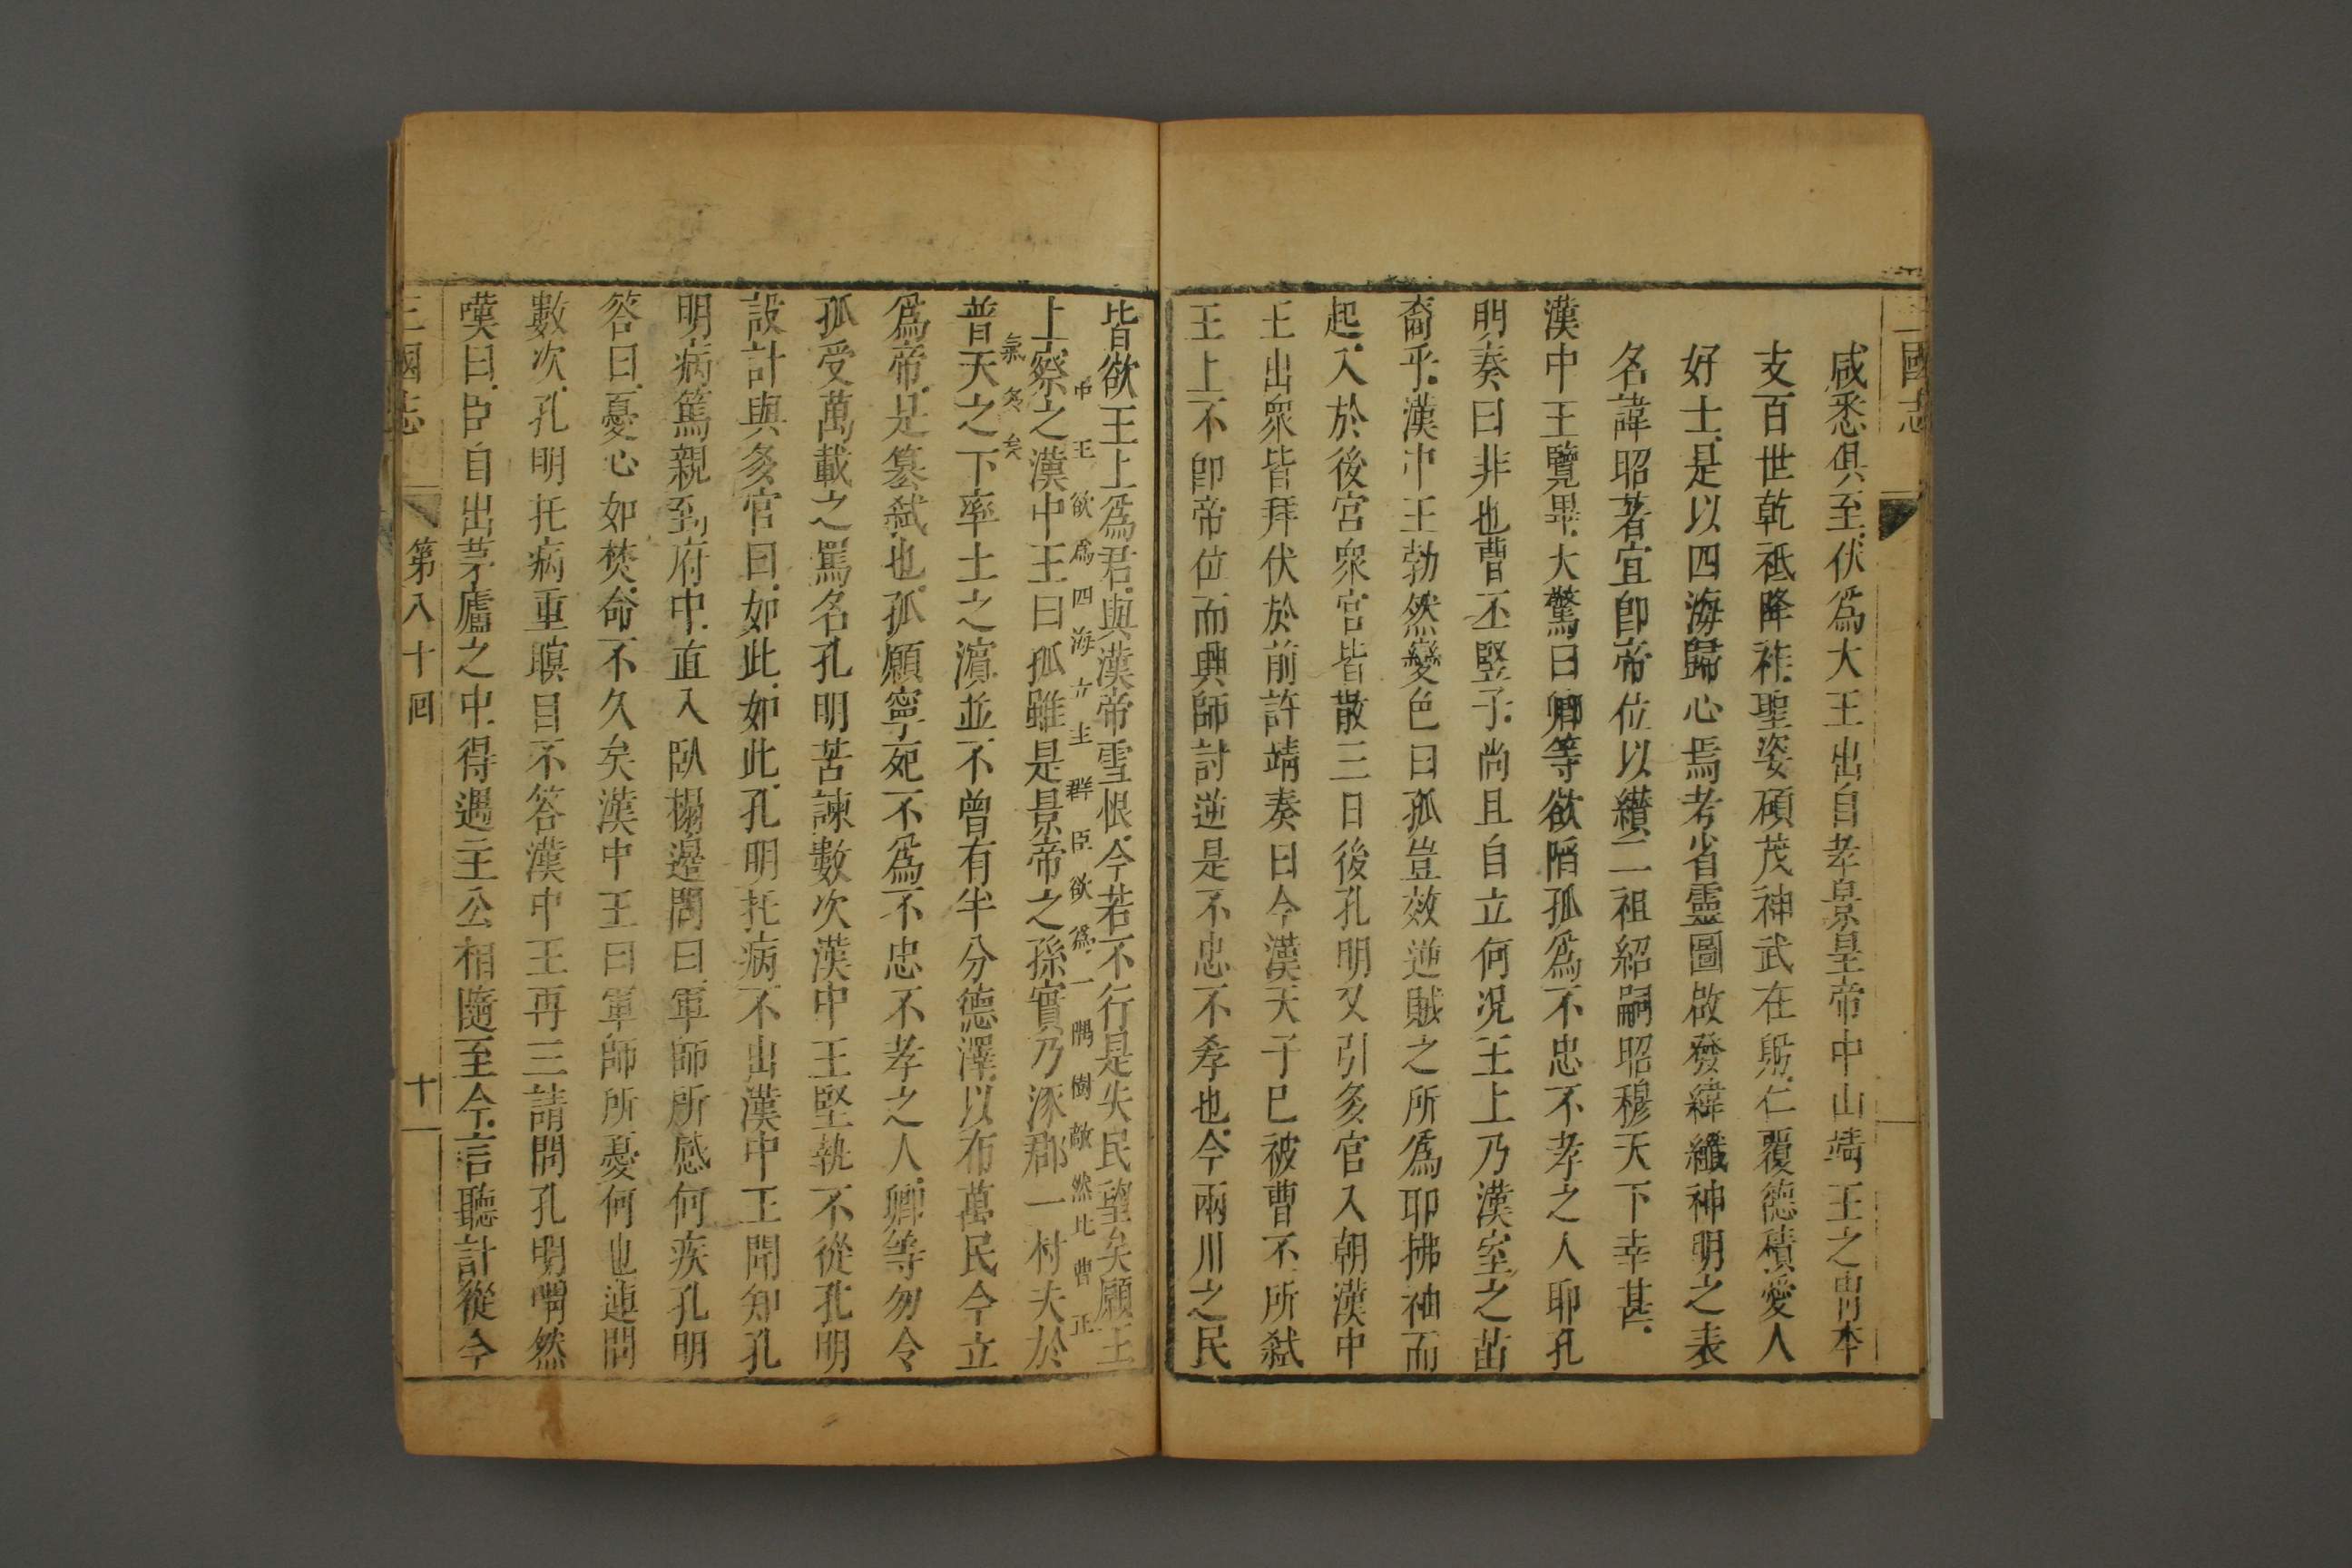 三國志
咸悉俱至伏爲大王出自孝景皇帝中山靖王之冑本
支百世乾祗降祚聖姿碩茂神武在躬仁覆德積愛人
好士是以四海歸心焉考省靈圖啟發緯䜟神明之表
名諱昭著宜卽帝位以纉二祖紹嗣昭穆天下幸甚
漢中王覽畢大驚曰卿等欲陷孤爲不忠不孝之人耶孔
明奏曰非也曹丕竪子尚且自立何况王上乃漢室之苗
裔乎漢中王勃然變色曰孤豈效逆賊之所爲耶拂袖而
起入於後宮衆官皆散三日後孔明又引多官入朝漢中
王出衆皆拜伏於前許靖奏曰今漢天子已被曹丕所弑
王上不卽帝位而興師討逆是不忠不孝也今兩川之民
皆欲王上爲君與漢帝雪恨今若不行是失民望矣願王
中王欲爲四海立主群臣欲爲一隅樹敵然比曹正
上察之漢中王曰孤雖是景帝之孫實乃涿郡一村夫於
氣多矣
普天之下率土之濵並不曾有半分德澤以布萬民今立
爲帝是篡弑也孤願寧死不爲不忠不孝之人卿等勿令
孤受萬載之罵名孔明苦諫數次漢中王堅執不從孔明
設計與多官曰如此如此孔明托病不出漢中王聞知孔
明病篤親到府中直入臥榻邉問曰軍師所感何疾孔明
答曰憂心如焚命不久矣漢中王曰軍師所憂何也連問
數次孔明托病重瞑目不答漢中王再三請問孔明喟然
嘆曰臣自出茅廬之中得遇主公相隨至今言聽計從今
三國志 第八十回 十一